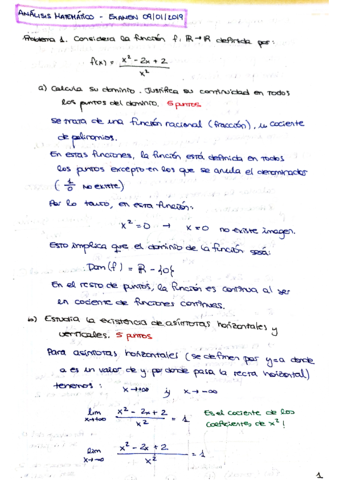 ANÁLISIS MATEMÁTICO - EXAMEN 09/01/2019
Problema 1. Considera la función f: R→R definida por:
f(x) = x² - 2x + 2 / x²
a) Calcula su dominio. Justifica su continuidad en todos
los puntos del dominio. 5 puntos
Se trata de una función racional (fracción), u cociente
de polinomios.
En estas funciones, la función está definida en todos
los puntos excepto en los que se anula el denominador
( 1/0 no existe)
Por lo tanto, en esta función:
x² = 0 → x = 0 no existe imagen.
Esto implica que el dominio de la función será:
Dom(f) = R - {0}
En el resto de puntos, la función es continua al ser
un cociente de funciones continuas.
b) Estudia la existencia de asíntotas horizontales y
verticales. 5 puntos
Para asíntotas horizontales (se definen por y=a donde
a es un valor de y por donde pasa la recta horizontal)
tenemos: x→+∞ y x→-∞
lim x→+∞ x² - 2x + 2 / x² = 1 Es el cociente de los
coeficientes de x²!
lim x→-∞ x² - 2x + 2 / x² = 1
1